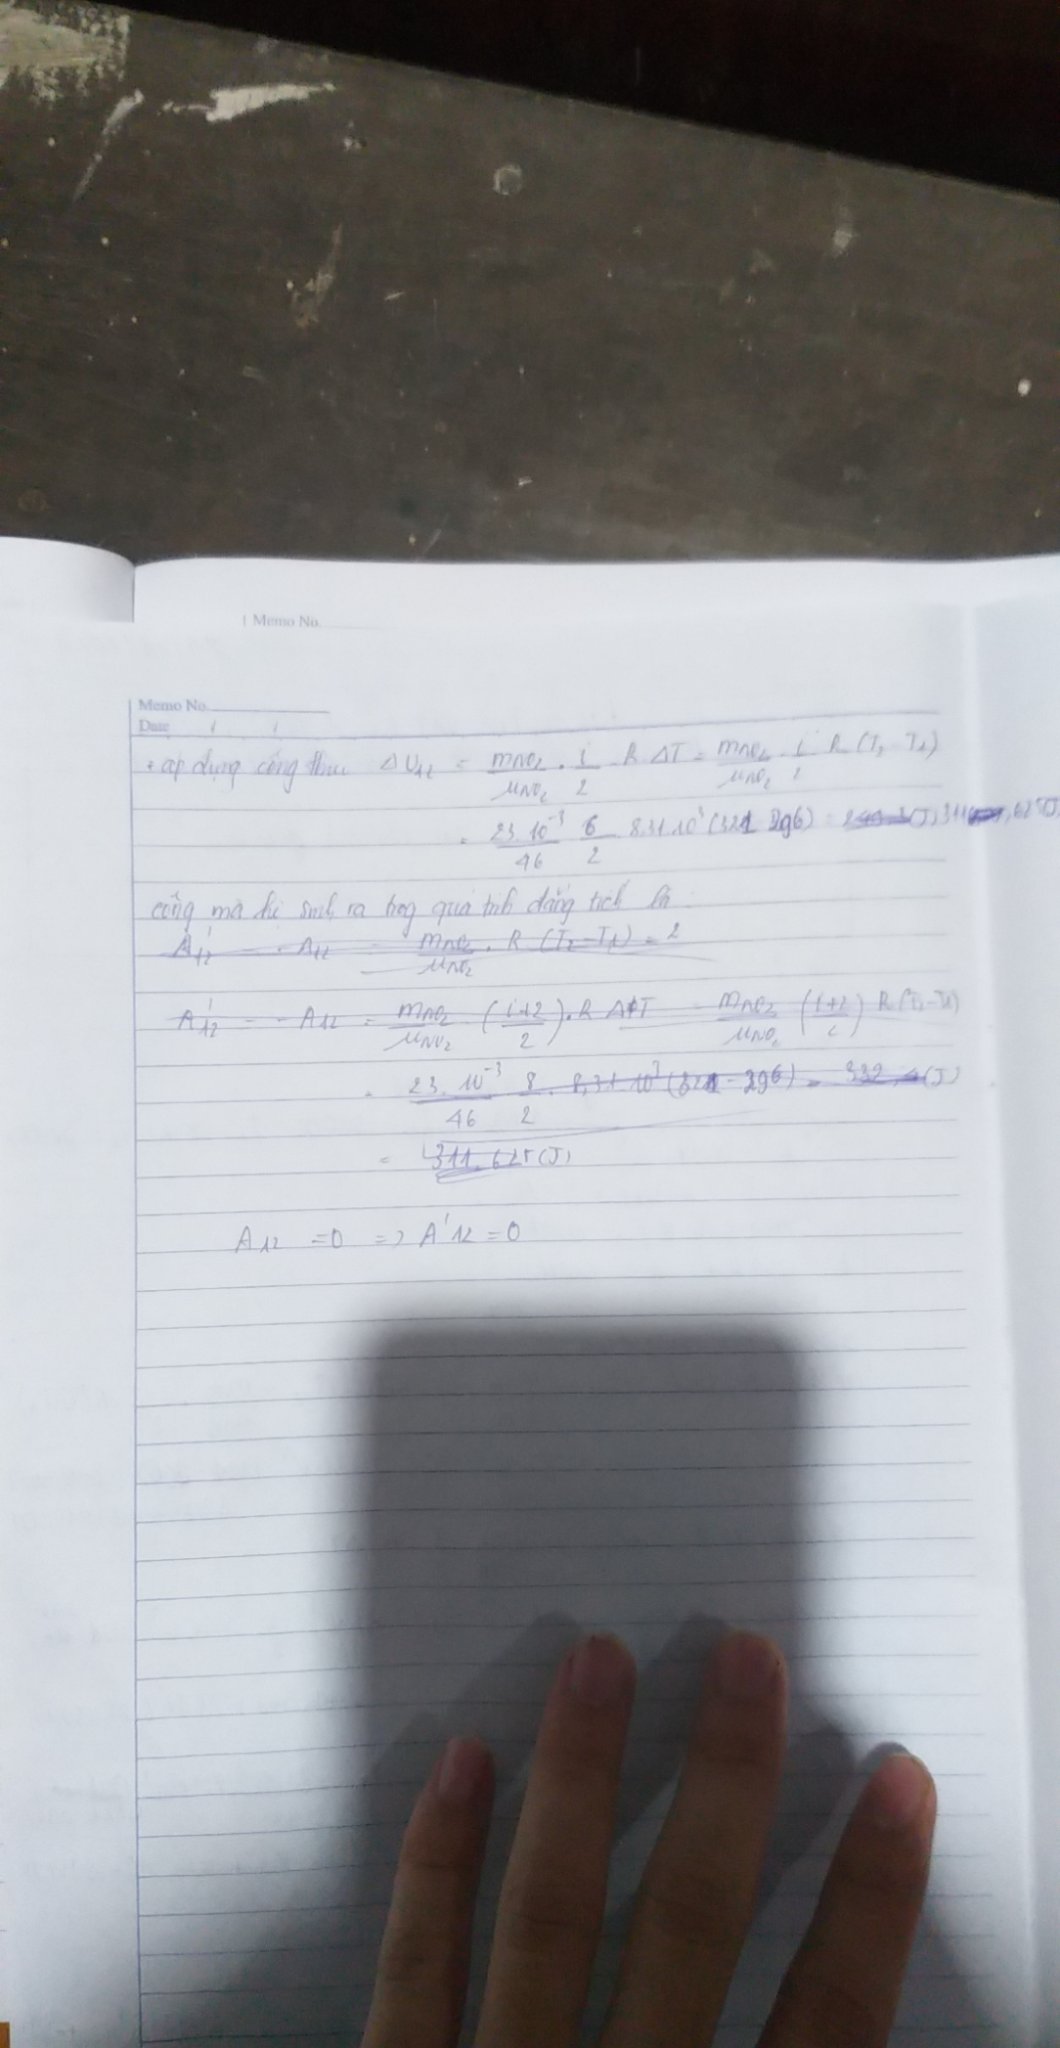 Memo No.
Memo No.
Date / /
+ áp dụng công thức ΔU₁₂ = m_NO₂/μ_NO₂ . i/2 R ΔT = m_NO₂/μ_NO₂ . i/2 R (T₂ - T₁)
= 23.10⁻³/46 6/2 8,31.10³ (321 296) =
công mà khí sinh ra trong quá trình đẳng tích là
A'₁₂ = - A₁₂ = m_NO₂/μ_NO₂ . R (T₂ - T₁) = 2
A'₁₂ = - A₁₂ = m_NO₂/μ_NO₂ (i+2/2) . R ΔT = m_NO₂/μ_NO₂ (i+2/2) R (T₂ - T₁)
= 23.10⁻³/46 8/2 . 8,31.10³ (321 - 296) = 332,4 (J)
= 311,625 (J)
A₁₂ = 0 => A'₁₂ = 0